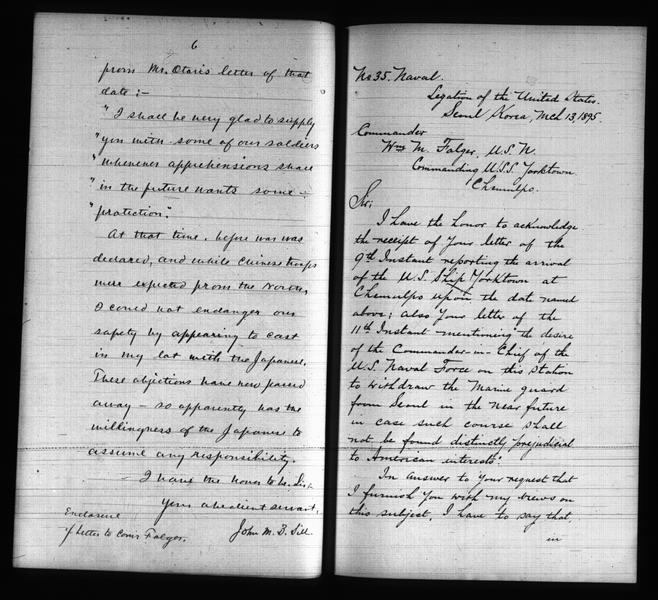 6
from Mr. Otori's letter of that
date:-
"I shall be very glad to supply
"you with some of our soldiers
"whenever apprehensions shall
"in the future wants some
"protection".
At that time, before war was
declared, and while Chinese troops
were expected from the North,
I could not endanger our
safety by appearing to cast
in my lot with the Japanese.
These objections have now passed
away - so apparently has the
willingness of the Japanese to
assume any responsibility.
I have the honor to be, Sir,
Your obedient servant,
John M. B. Sill.
Enclosure
of Letter to Com'r Folger.
No 35. Naval.
Legation of the United States.
Seoul Korea, Mch 13, 1895.
Commander
Wm M. Folger, U.S.N.
Commanding U.S.S. Yorktown.
Chemulpo.
Sir;
I have the honor to acknowledge
the receipt of Your letter of the
9th Instant reporting the arrival
of the U.S. Ship Yorktown at
Chemulpo upon the date named
above; also Your letter of the
11th Instant mentioning the desire
of the Commander-in-Chief of the
U.S. Naval Force on this Station
to withdraw the Marine guard
from Seoul in the near future
in case such course shall
not be found distinctly prejudicial
to American interests.
In answer to Your request that
I furnish You with my views on
this subject, I have to say that,
in